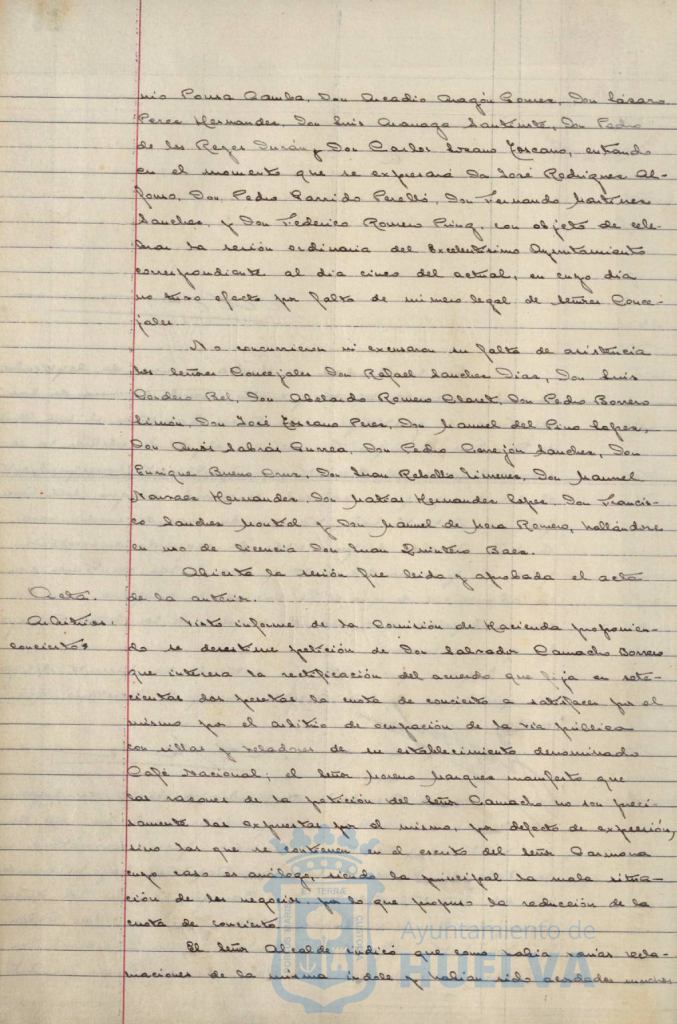 nio Ponsa Camba, Don Arcadio Aragón Gomez, Don Lázaro
Perez Hernandez, Don Luis Don Pedro
de los Reyes Durán y Don Carlos Lozano Toscano, entrando
en el momento que se expresará Don José Rodriguez Al-
fonso, Don Pedro Garrido Perelló, Don Fernando Martinez
Sanchez, y Don Federico Romero con objeto de cele-
brar la sesión ordinaria del Excelentisimo Ayuntamiento
correspondiente al dia cinco del actual, en cuyo dia
no tuvo efecto por falta de número legal de Señores Conce-
jales.
No concurrieron ni excusaron su falta de asistencia
los Señores Concejales Don Rafael Sanchez Diaz, Don Luis
Cordero Bel, Don Abelardo Romero Claret, Don Pedro Borrero
Limón, Don José Toscano Perez, Don Manuel del Pino Lopez,
Don Amós Sabrás Gurrea, Don Pedro Cerrejón Sanchez, Don
Enrique Bueno Cruz, Don Juan Rebollo Jimenez, Don Manuel
Narvaez Hernandez, Don Matias Hernandez Lopez, Don Francis-
co Sanchez Montiel y Don Manuel de Mora Romero, hallándose
en uso de licencia Don Juan Quintero Baez.
Acta.
Abierta la sesión fue leida y aprobada el acta
de la anterior.
Arbitrios:
conciertos
Visto informe de la Comisión de Hacienda proponien-
do se desestime petición de Don Salvador Camacho Borrero
que interesa la rectificación del acuerdo que fija en sete-
cientas dos pesetas la cuota de concierto a satisfacer por el
mismo por el arbitrio de ocupación de la via pública
con sillas y veladores de su establecimiento denominado
Café Nacional; el Señor Moreno Marquez manifestó que
las razones de la petición del Señor Camacho no son preci-
samente las expuestas por el mismo, por defecto de expresión,
sino las que se contienen en el escrito del Señor Carmona
cuyo caso es análogo, siendo la principal la mala situa-
ción de los negocios, por lo que propuso la reducción de la
cuota de concierto.
El Señor Alcalde indicó que como habia varias recla-
maciones de la misma indole y habian sido acordadas menores
Ayuntamiento de
HUELVA